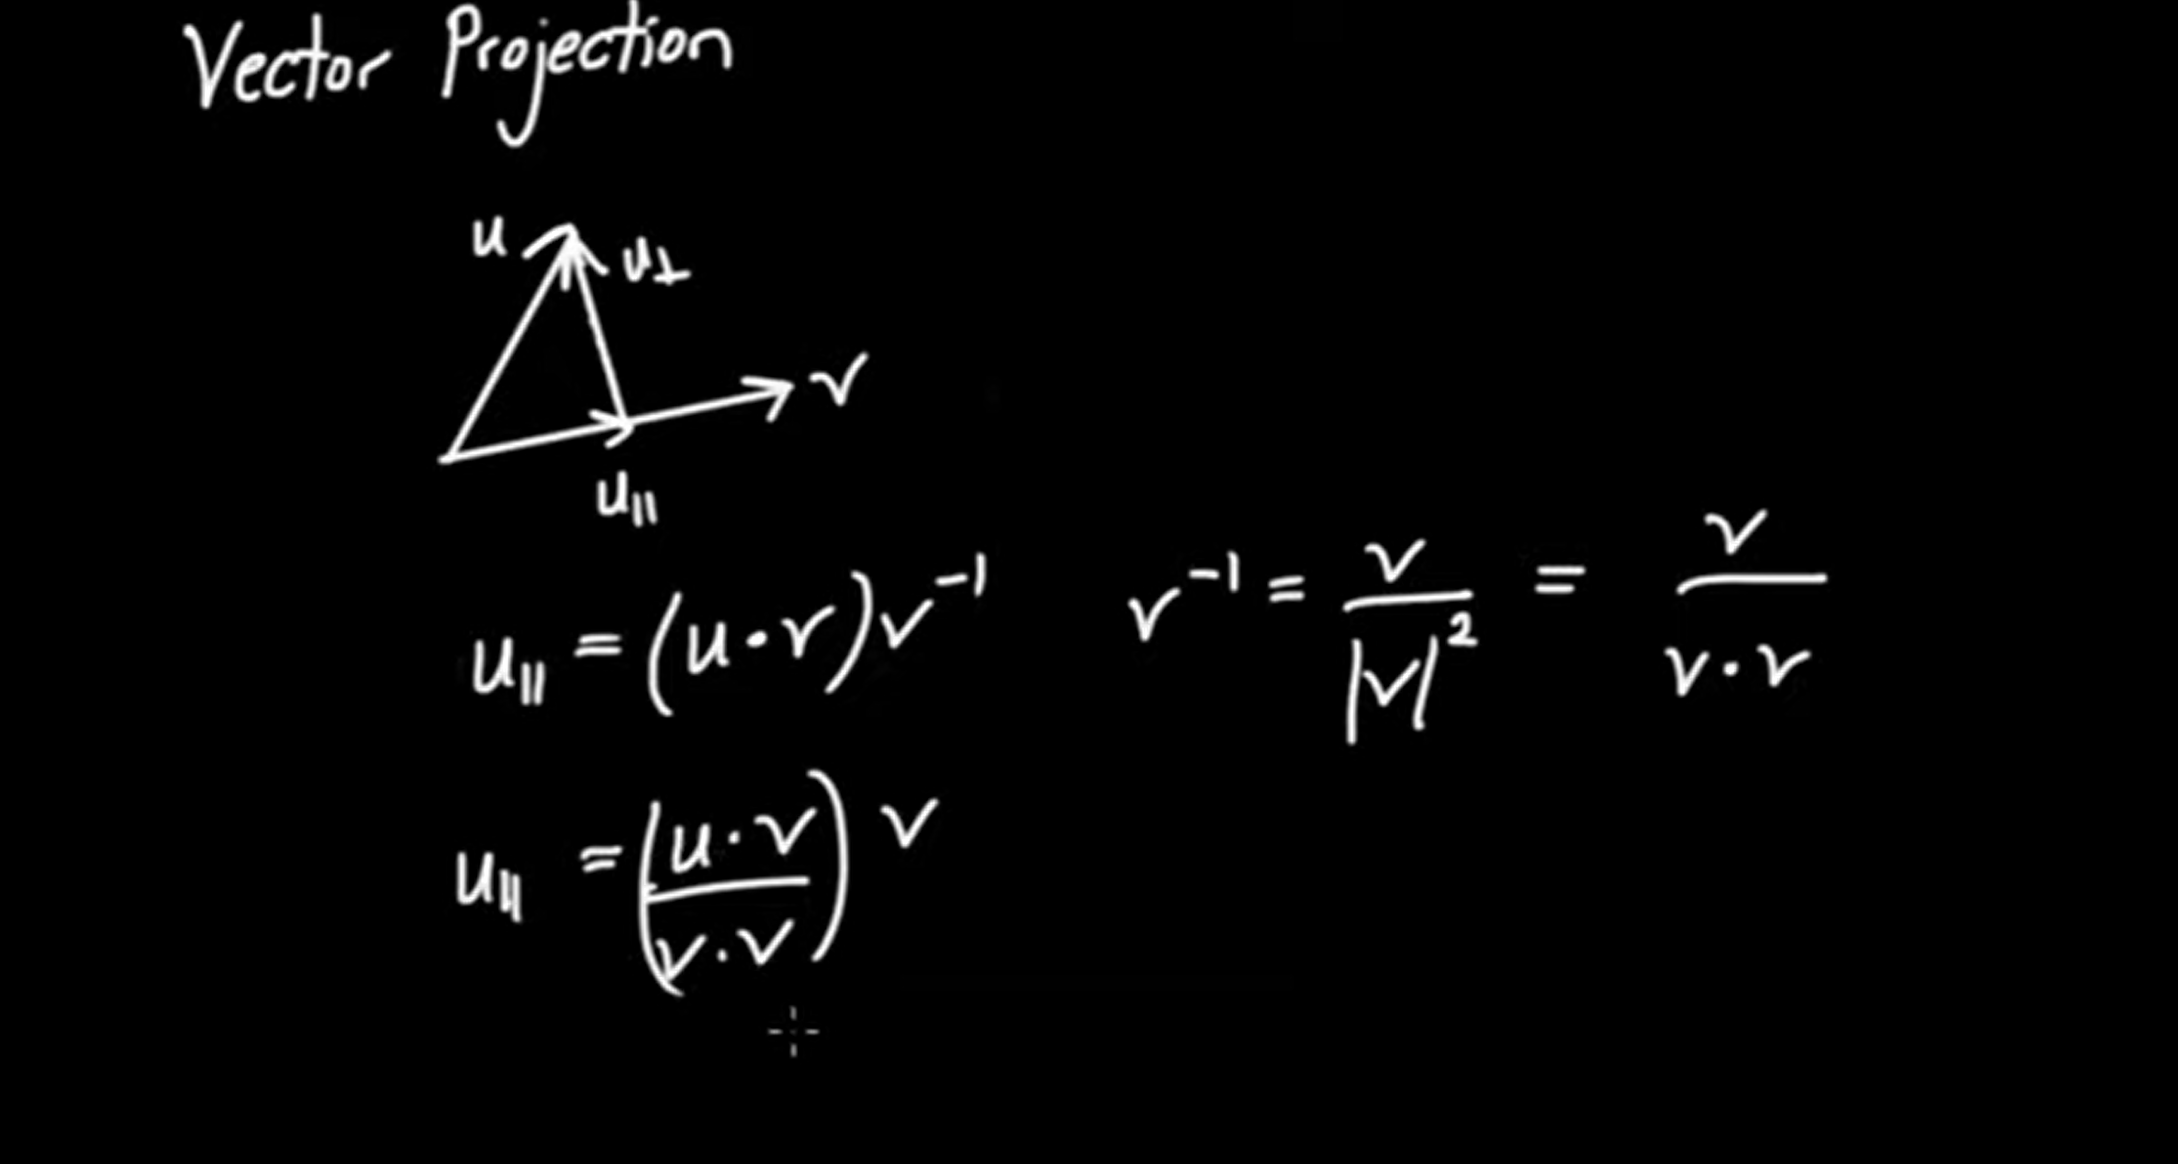 Vector Projection
u
u⊥
v
u∥
u∥ = (u·v)v⁻¹
v⁻¹ = v/|v|² = v/(v·v)
u∥ = ((u·v)/(v·v)) v